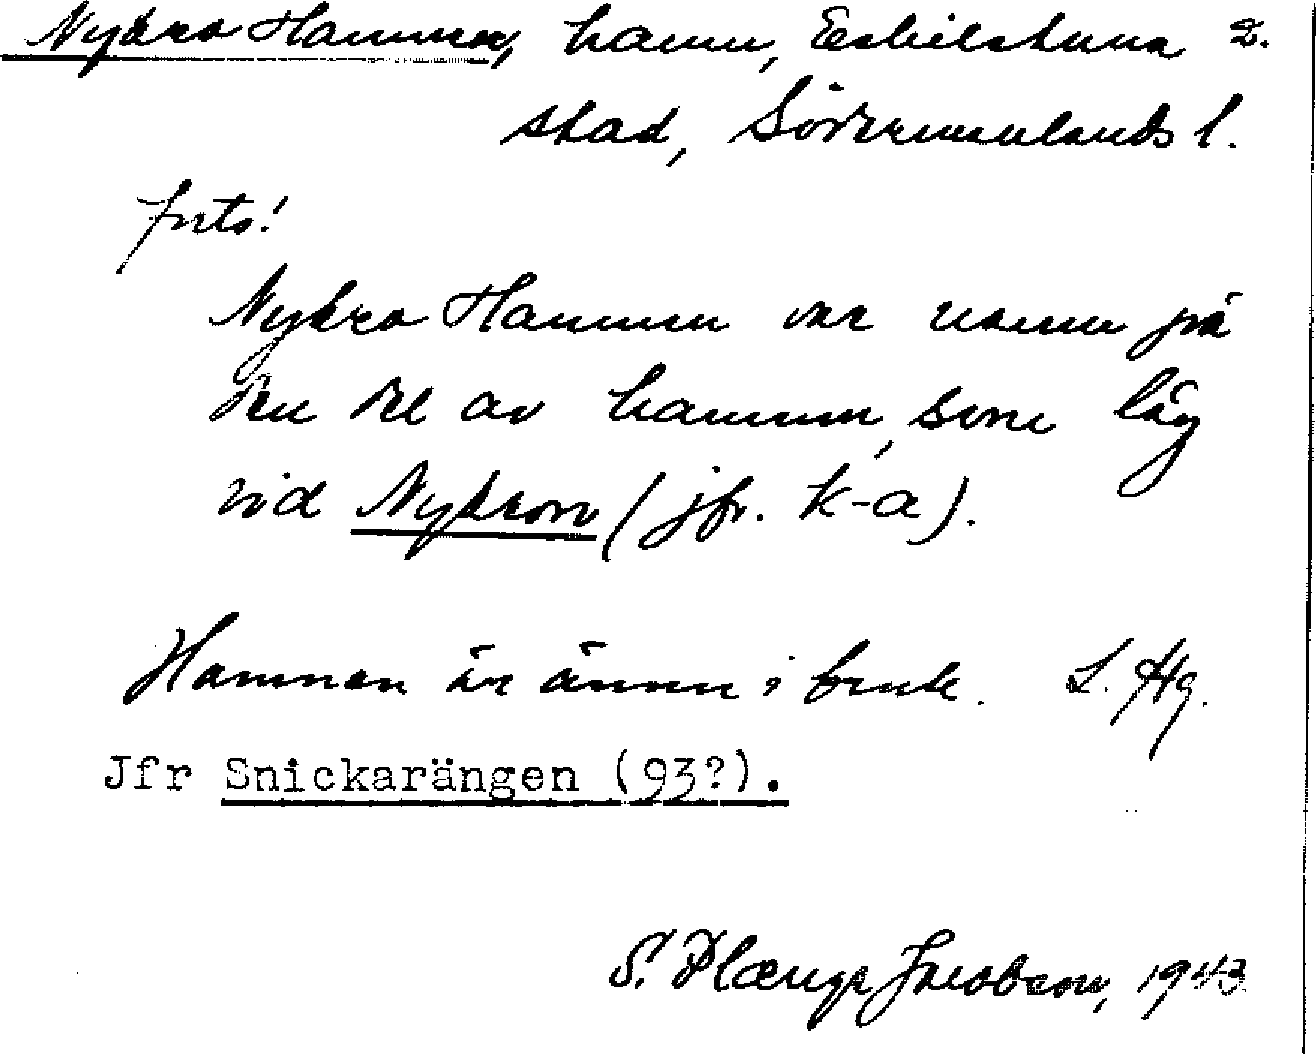 Nykro Hamnen, hamn, Eskilstuna 2.
stad, Södermanlands l.
foto!
Nykro Hamnen var namn på
den del av hamnen, som låg
vid Nykron (jfr. k-a).
Hamnen är ännu i bruk. L. Hg.
Jfr Snickarängen (93?).
S. Jacobson, 1943